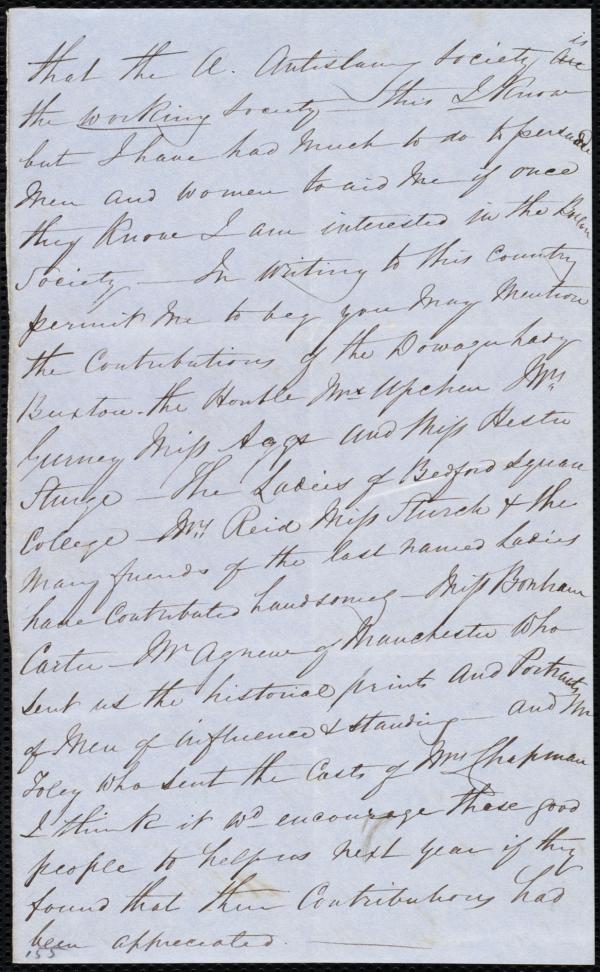 that the A. Antislavery Society is
the working Society – this I know
but I have had much to do to persuade
Men and women to aid me if once
they know I am interested in the Boston
Society — In writing to this country
permit me to beg you may mention
the Contributions of the Dowager Lady
Buxton – the Honble Mrs Upcher Mrs
Gurney Miss Aggs and Miss Hester
Sturge – The Ladies of Bedford Square
College – Mrs Reid Miss Sturch & the
many friends of the last named Ladies
have contributed handsomely – Miss Bonham
Carter – Mr Agnew of Manchester who
sent us the historical prints and Portraits
of Men of influence & standing – and Mr
Foley who sent the Casts of Mrs Chapman
I think it wd encourage these good
people to help us next year if they
found that their Contributions had
been appreciated. —
155